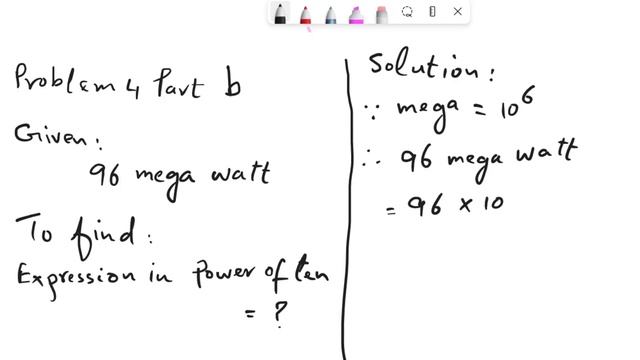 Problem 4 Part b
Given:
96 mega watt
To find:
Expression in power of ten
= ?
Solution:
∵ mega = 10⁶
∴ 96 mega watt
= 96 × 10